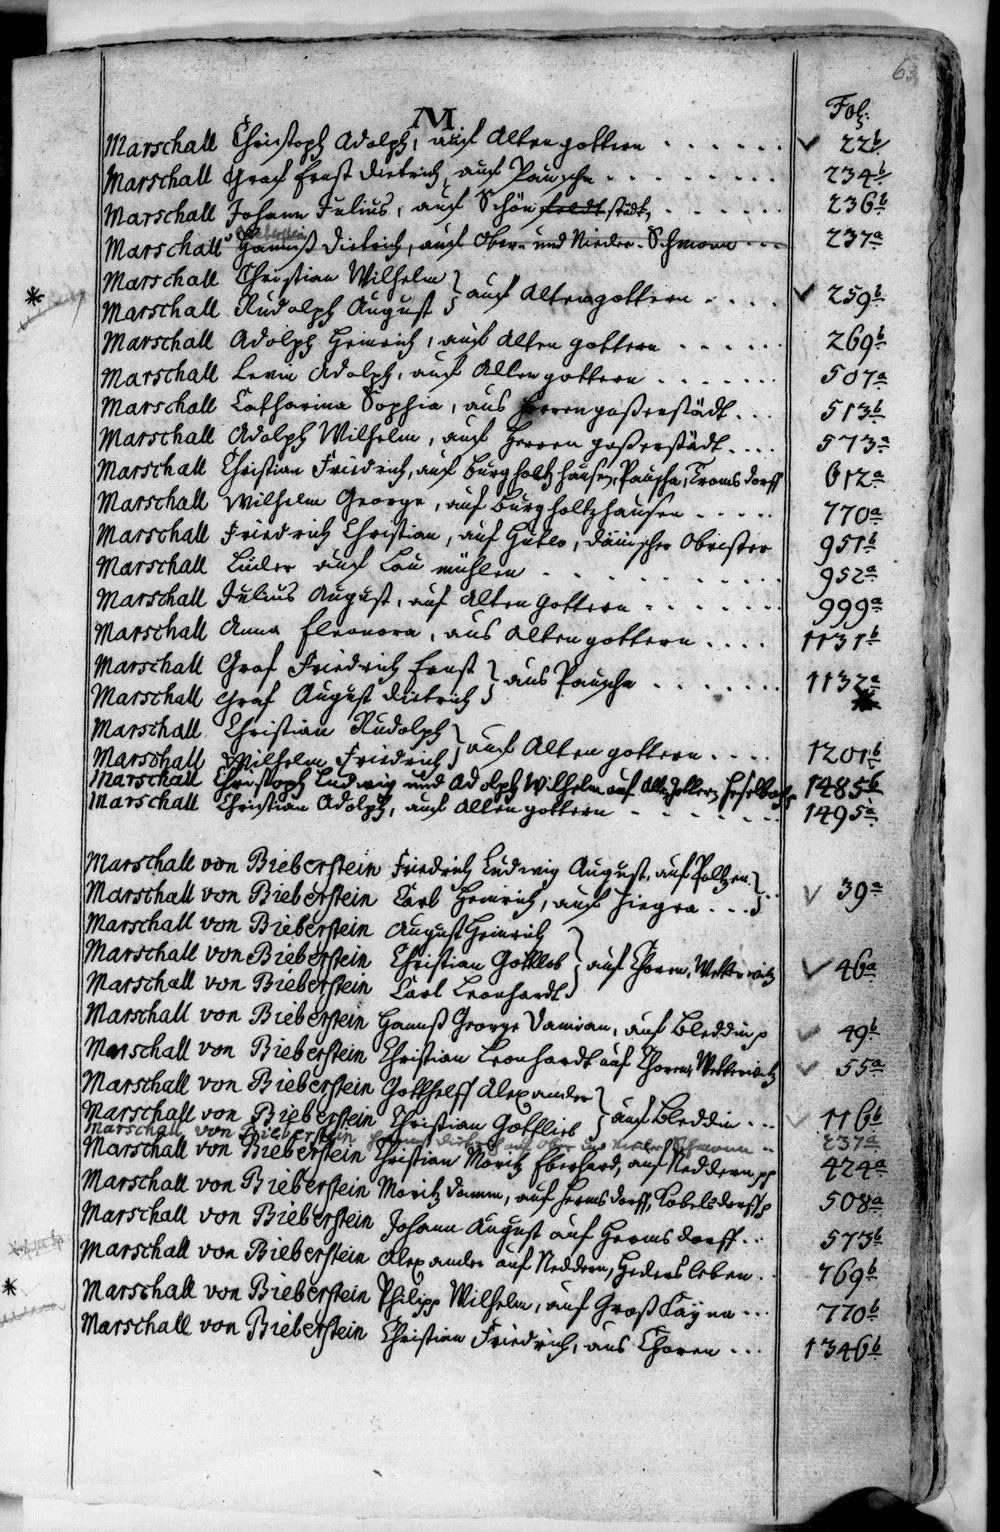 63
M.
Fol:
Marschall Christoph Adolph, auf Altengottern . . . . . . 22b
Marschall Graf Ernst Dietrich, auf Pauscha . . . . . . . . 234b
Marschall Johann Julius, auf Schön feldt städt, . . . . . . 236b
Marschall Hannß Dietrich, auf Ober- und Nieder-Schmon . . . 237a
Marschall Christian Wilhelm
Marschall Rudolph August } auf Altengottern . . . . 259b
Marschall Adolph Heinrich, auf Altengottern . . . . . . 269b
Marschall Levin Adolph, auf Altengottern . . . . . . . 507a
Marschall Catharina Sophia, aus Herrengoßerstädt . . . 513b
Marschall Adolph Wilhelm, auf Herrengoßerstädt . . . . 573a
Marschall Christian Friedrich, auf Burgholtzhausen, Pauscha, Tromsdorff 612a
Marschall Wilhelm George, auf Burgholtzhausen . . . . . 770a
Marschall Friedrich Christian, auf Dänischer Obrister 951b
Marschall Lüder auf Lau mühlen . . . . . . . . 952a
Marschall Julius August, auf Alten Gottern . . . . . . . 999a
Marschall Anna Eleonora, aus Altengottern . . . . 1131b
Marschall Graf Friedrich Ernst
Marschall Graf August Dietrich } aus Pauscha . . . . . . . 1132a
Marschall Christian Rudolph
Marschall Wilhelm Friedrich } auf Altengottern . . . . 1201b
Marschall Christoph Ludwig und Adolph Wilhelm auf 1485b
Marschall Christian Adolph, auf Altengottern . . . . . . . 1495a
Marschall von Bieberstein Friedrich Ludwig August, auf Poltzen
Marschall von Bieberstein Carl Heinrich, auf Ziegra . . . } 39a
Marschall von Bieberstein August Heinrich
Marschall von Bieberstein Christian Gottlob } auf Choren, Wetterwitz 46a
Marschall von Bieberstein Carl Leonhardt
Marschall von Bieberstein Hannß George Damian, auf Bleddin p 49b
Marschall von Bieberstein Christian Leonhardt auf Choren, Wetterwitz 55a
Marschall von Bieberstein Gotthelff Alexander
Marschall von Bieberstein Christian Gottlieb } auf Bleddin . . . 116b
Marschall von Bieberstein Hannß Dietrich auf Ober und Nieder Schmon 237a
Marschall von Bieberstein Christian Moritz Eberhard, auf Neddern pp 424a
Marschall von Bieberstein Moritz Damm, auf Hermsdorff, p 508a
Marschall von Bieberstein Johann August auf Hermsdorff . . 573b
Marschall von Bieberstein Alexander auf Neddern, Hedersleben . 769b
Marschall von Bieberstein Philipp Wilhelm, auf Groß Cayna . . . 770b
Marschall von Bieberstein Christian Friedrich, aus Choren . . . 1346b